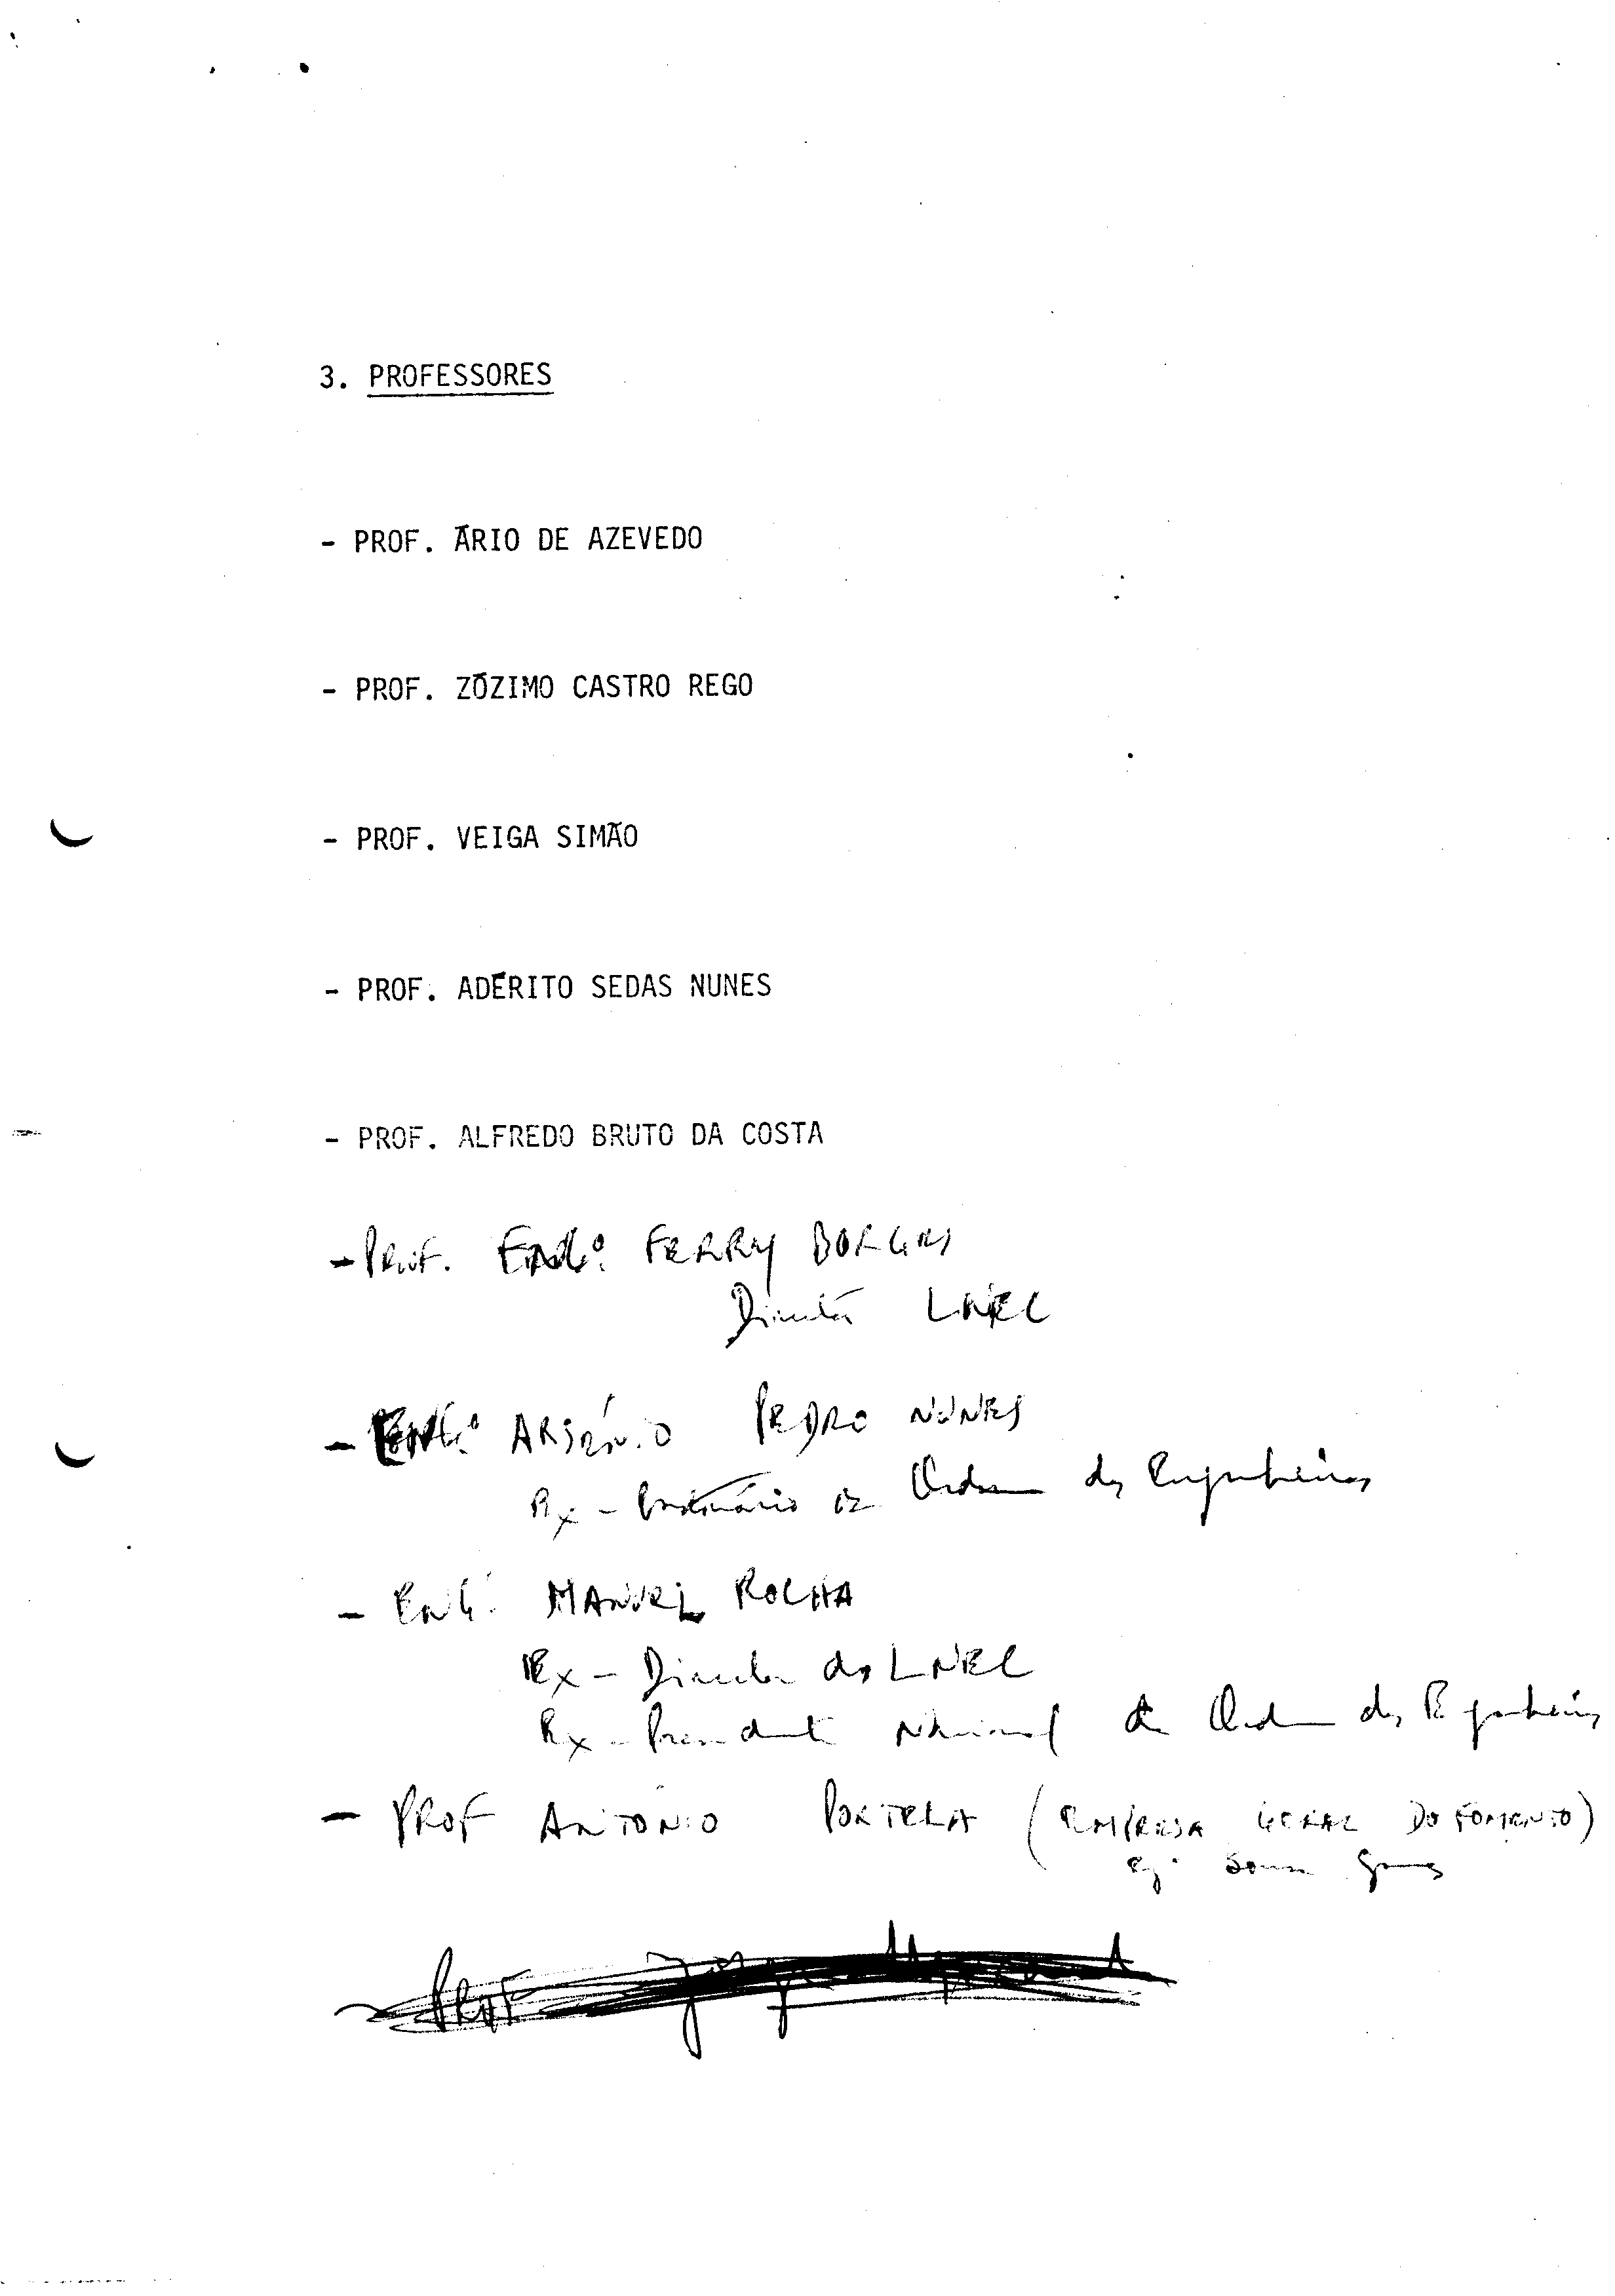 3. PROFESSORES
- PROF. ÁRIO DE AZEVEDO
- PROF. ZÓZIMO CASTRO REGO
- PROF. VEIGA SIMÃO
- PROF. ADÉRITO SEDAS NUNES
- PROF. ALFREDO BRUTO DA COSTA
- PROF. ENGº. FERRY BORGES
Director LNEC
- ENGº ARSÉNIO PEDRO NUNES
Ex - da Ordem dos Engenheiros
- ENGº MANUEL ROCHA
Ex - Director do LNEC
Ex - Presidente Nacional da Ordem dos Engenheiros
- PROF ANTÓNIO PORTELA (EMPRESA GERAL DO FOMENTO)
Engº Sousa Gomes
PROF